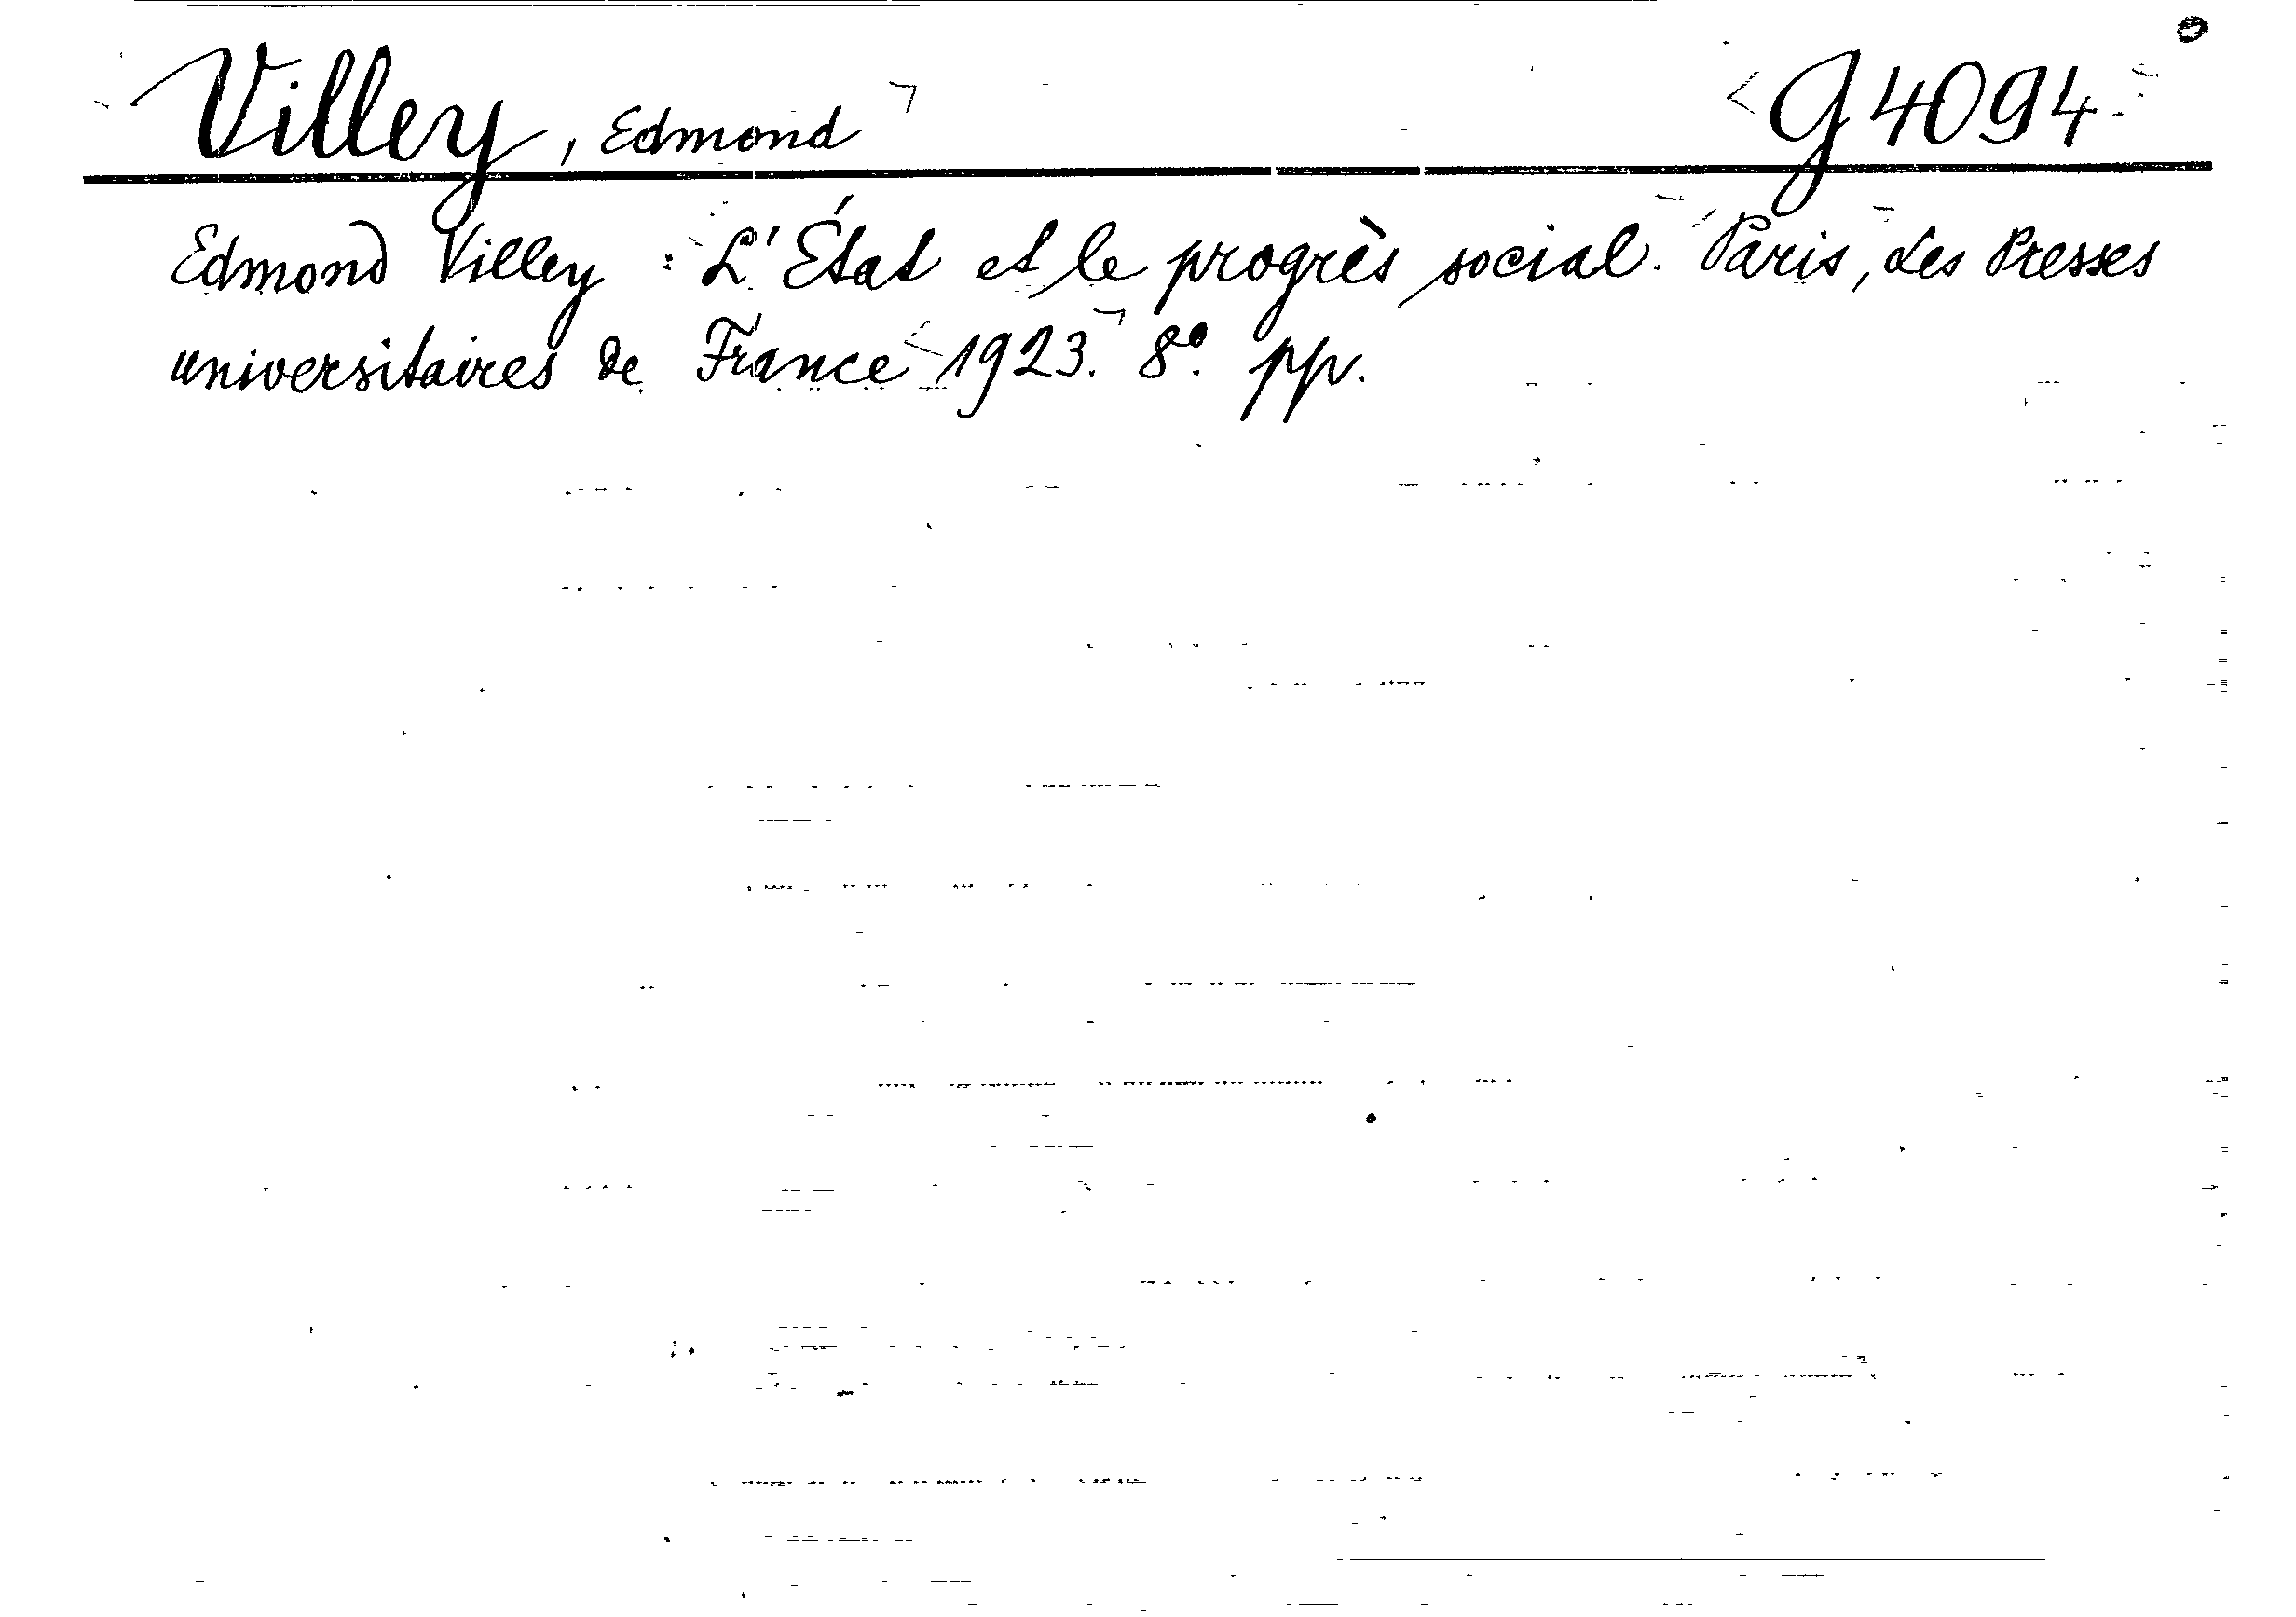 Villey, Edmond g 4094
Edmond Villey : L'État et le progrès social. Paris, Les Presses
universitaires de France 1923. 8°. pp.